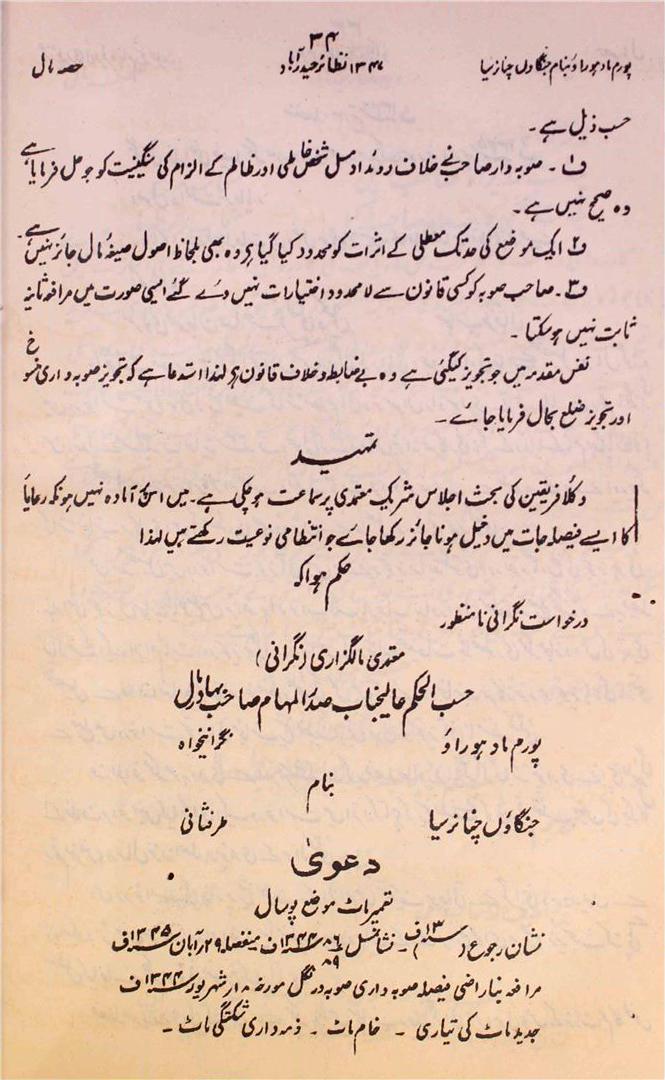 ۳۴
پورم مادہوراؤ بنام جنگاؤں چنا نرسیا ۱۳۴۷ نظائر حیدرآباد حصہ مال
حسب ذیل ہے۔
ف۱۔ صوبہ دار صاحب نے خلاف روئداد مسل شخص خاطی اور ظالم کے الزام کی سنگینیت کو جو حل فرمایا ہے
وہ صحیح نہیں ہے۔
ف۲ ایک موضع کی حد تک معطلی کے اثرات کو محدود کیا گیا ہی وہ بھی بلحاظ اصول صیغہ مال جائز نہیں ہے۔
ف۳۔ صاحب صوبہ کو کسی قانون سے لا محدود اختیارات نہیں دے گئے ایسی صورت میں مرافعہ ثانیہ
ثابت نہیں ہوسکتا۔
نفس مقدمہ میں جو تجویز کیگئی ہے وہ بے ضابطہ وخلاف قانون ہر لہذا استدعا ہے کہ تجویز صوبہ داری منسوخ
اور تجویز ضلع بحال فرمایا جائے۔
تمہید
وکلا فریقین کی بحث اجلاس شریک معتمدی پر سماعت ہوچکی ہے۔ میں اس پر آمادہ نہیں ہوں کہ رعایا
کا ایسے فیصلہ جات میں دخیل ہونا جائز رکھا جاے جو انتظامی نوعیت رکھتے ہیں لہذا
حکم ہوا کہ
درخواست نگرانی نامنظور
معتمدی مالگزاری (نگرانی)
حسب الحکم عالیجناب صدر المہام صاحب بہادر مال
پورم مادہوراؤ نگرانیخواہ
بنام
جنگاؤں چنا نرسیا طرفثانی
دعویٰ
تعمیر باٹ موضع پوسال
نشان رجوع (۱۳) سنہ ف۔ نشانمسل ۸۶/۸۹ سنہ ۱۳۴۴ف منفصلہ ۲۹ر آبان سنہ ۱۳۴۵ف
مرافعہ بناراضی فیصلہ صوبہ داری صوبہ ورنگل مورخہ ۱۸ر شہریور سنہ ۱۳۴۴ف
جدید ماٹ کی تیاری۔ خام ماٹ۔ ذمہ داری شکستگی ماٹ۔